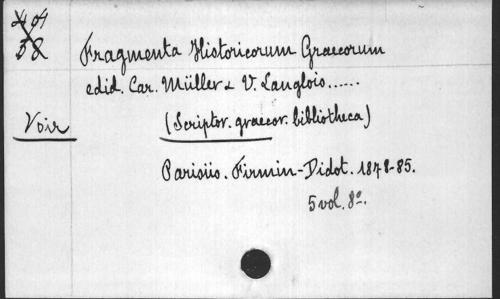 58
Fragmenta Historicorum Graecorum
edid. Car. Müller & V. Langlois......
Voir (Scriptor. graecor. bibliotheca)
Parisiis. Firmin-Didot. 1878-85.
5 vol. 8o.